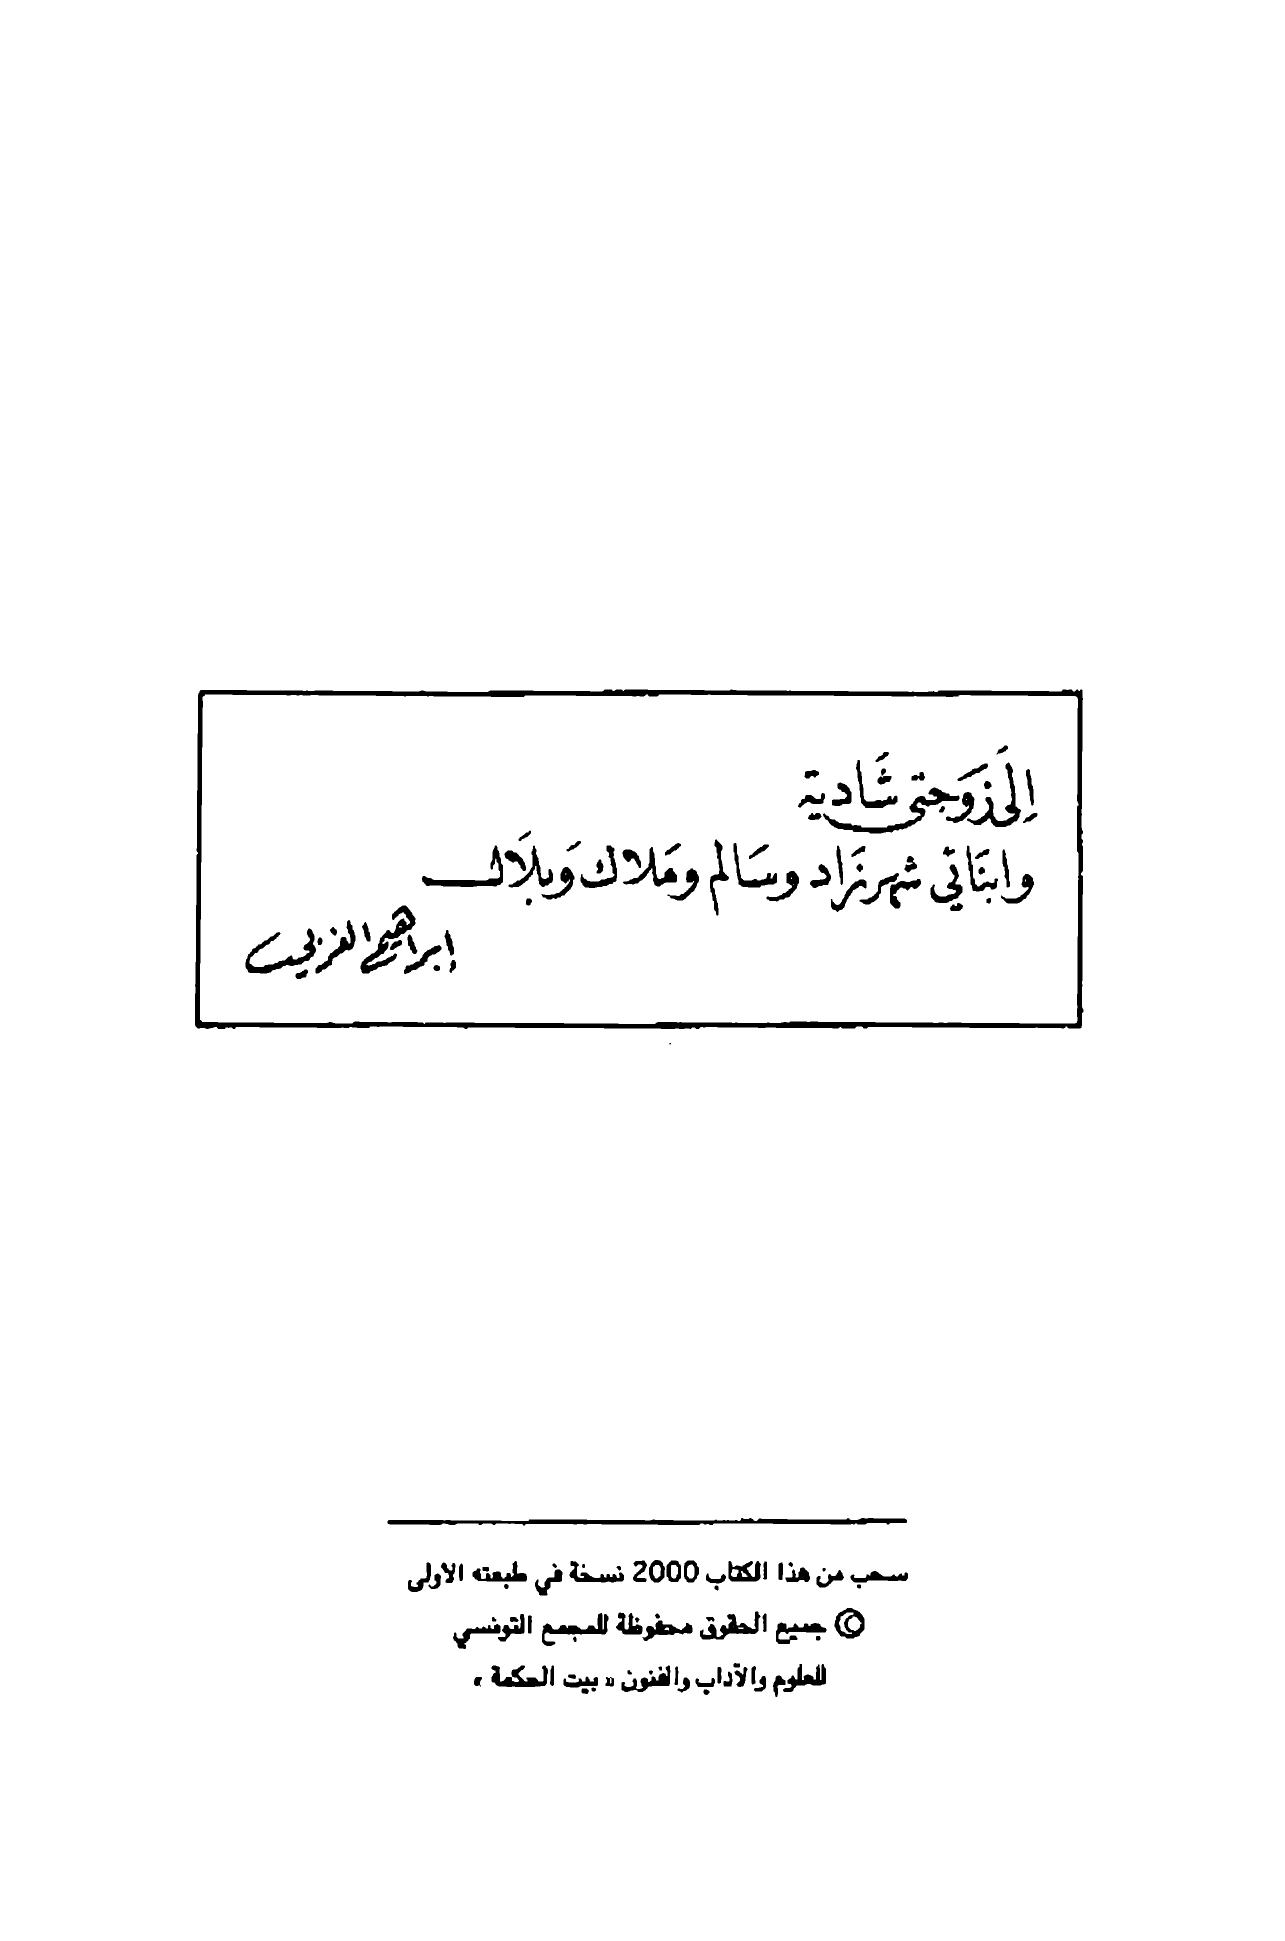 إلَى زَوجَتي شَادية
وابنَائي شهرزَاد وسَالم ومَلاك وَبلَال
إبراهيم الغربي
سحب من هذا الكتاب 2000 نسخة في طبعته الاولى
© جميع الحقوق محفوظة للمجمع التونسي
للعلوم والآداب والفنون « بيت الحكمة »